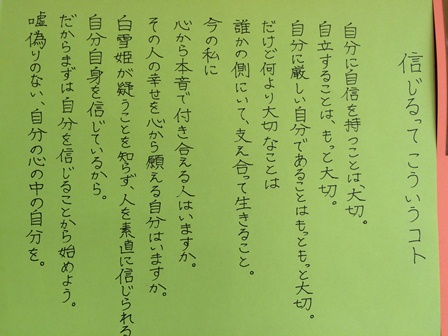 信じるって こういうコト
自分に自信を持つことは、大切。
自立することは、もっと大切。
自分に厳しい自分であることはもっともっと大切。
だけど何より大切なことは
誰かの側にいて、支え合って生きること。
今の私に
心から本音で付き合える人はいますか。
その人の幸せを心から願える自分はいますか。
白雪姫が疑うことを知らず、人を素直に信じられる
自分自身を信じているから。
だからまずは自分を信じることから始めよう。
嘘偽りのない、自分の心の中の自分を。